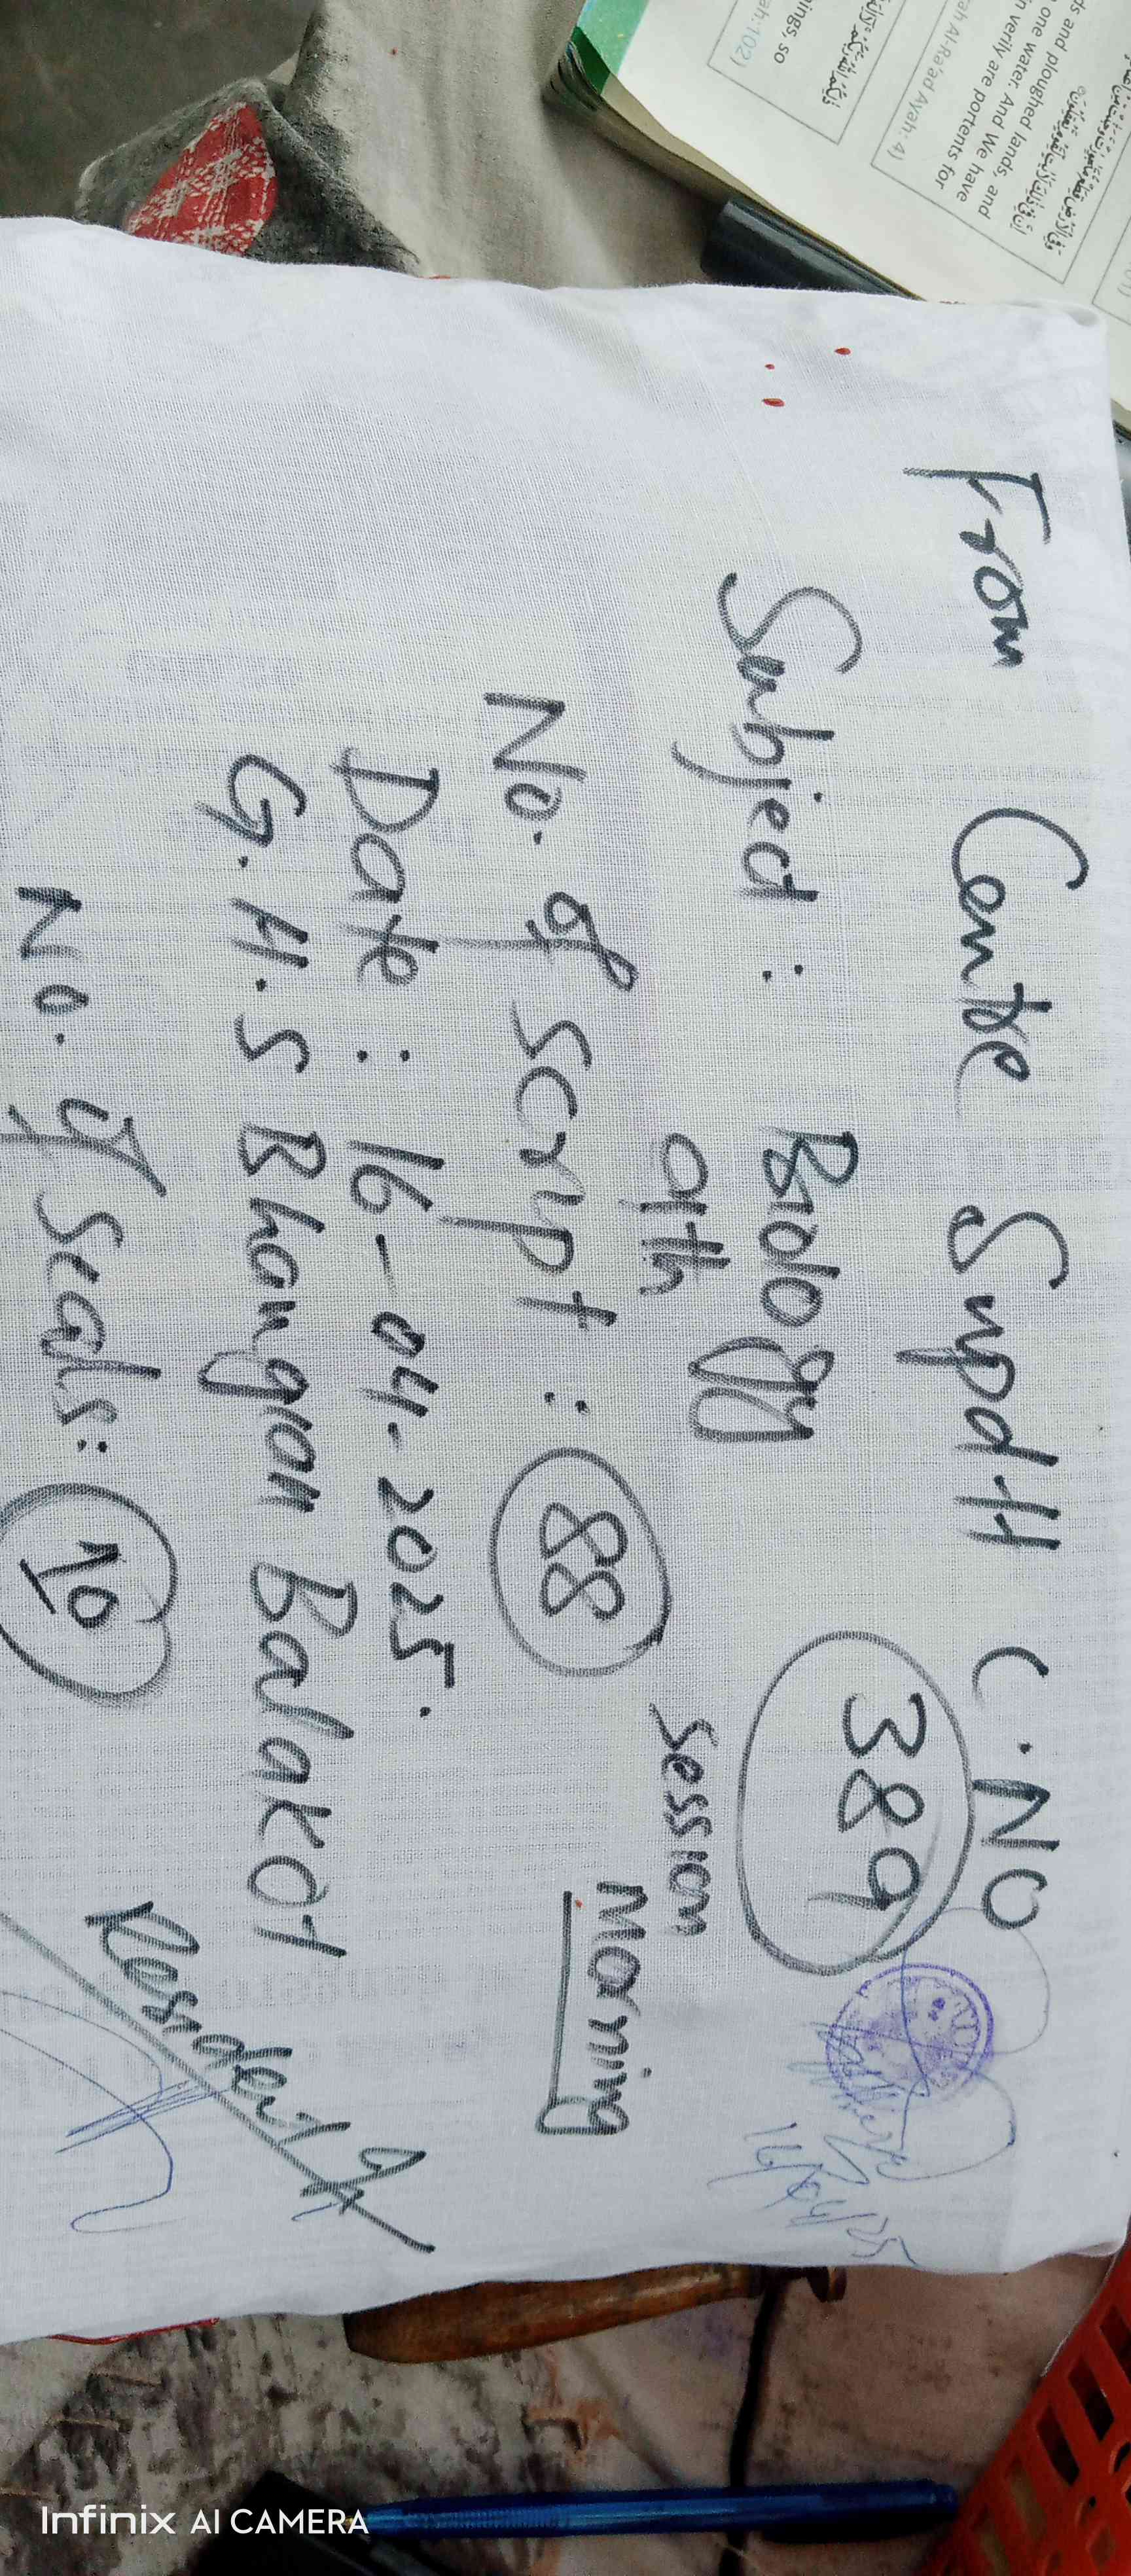 From Centre Supdtt C.NO
389
Subject : Biology
9th
Session
Morning
No. of Script : 88
Date : 16-04-2025.
G.H.S Bhangian Balakot
No. of Seals: 10
Resident
16/04/25
ds and ploughed lands, and
one water. And We have
n verily are portents for
rah Al-Ra'ad Ayah: 4)
ings, so
ah:102)
Infinix AI CAMERA